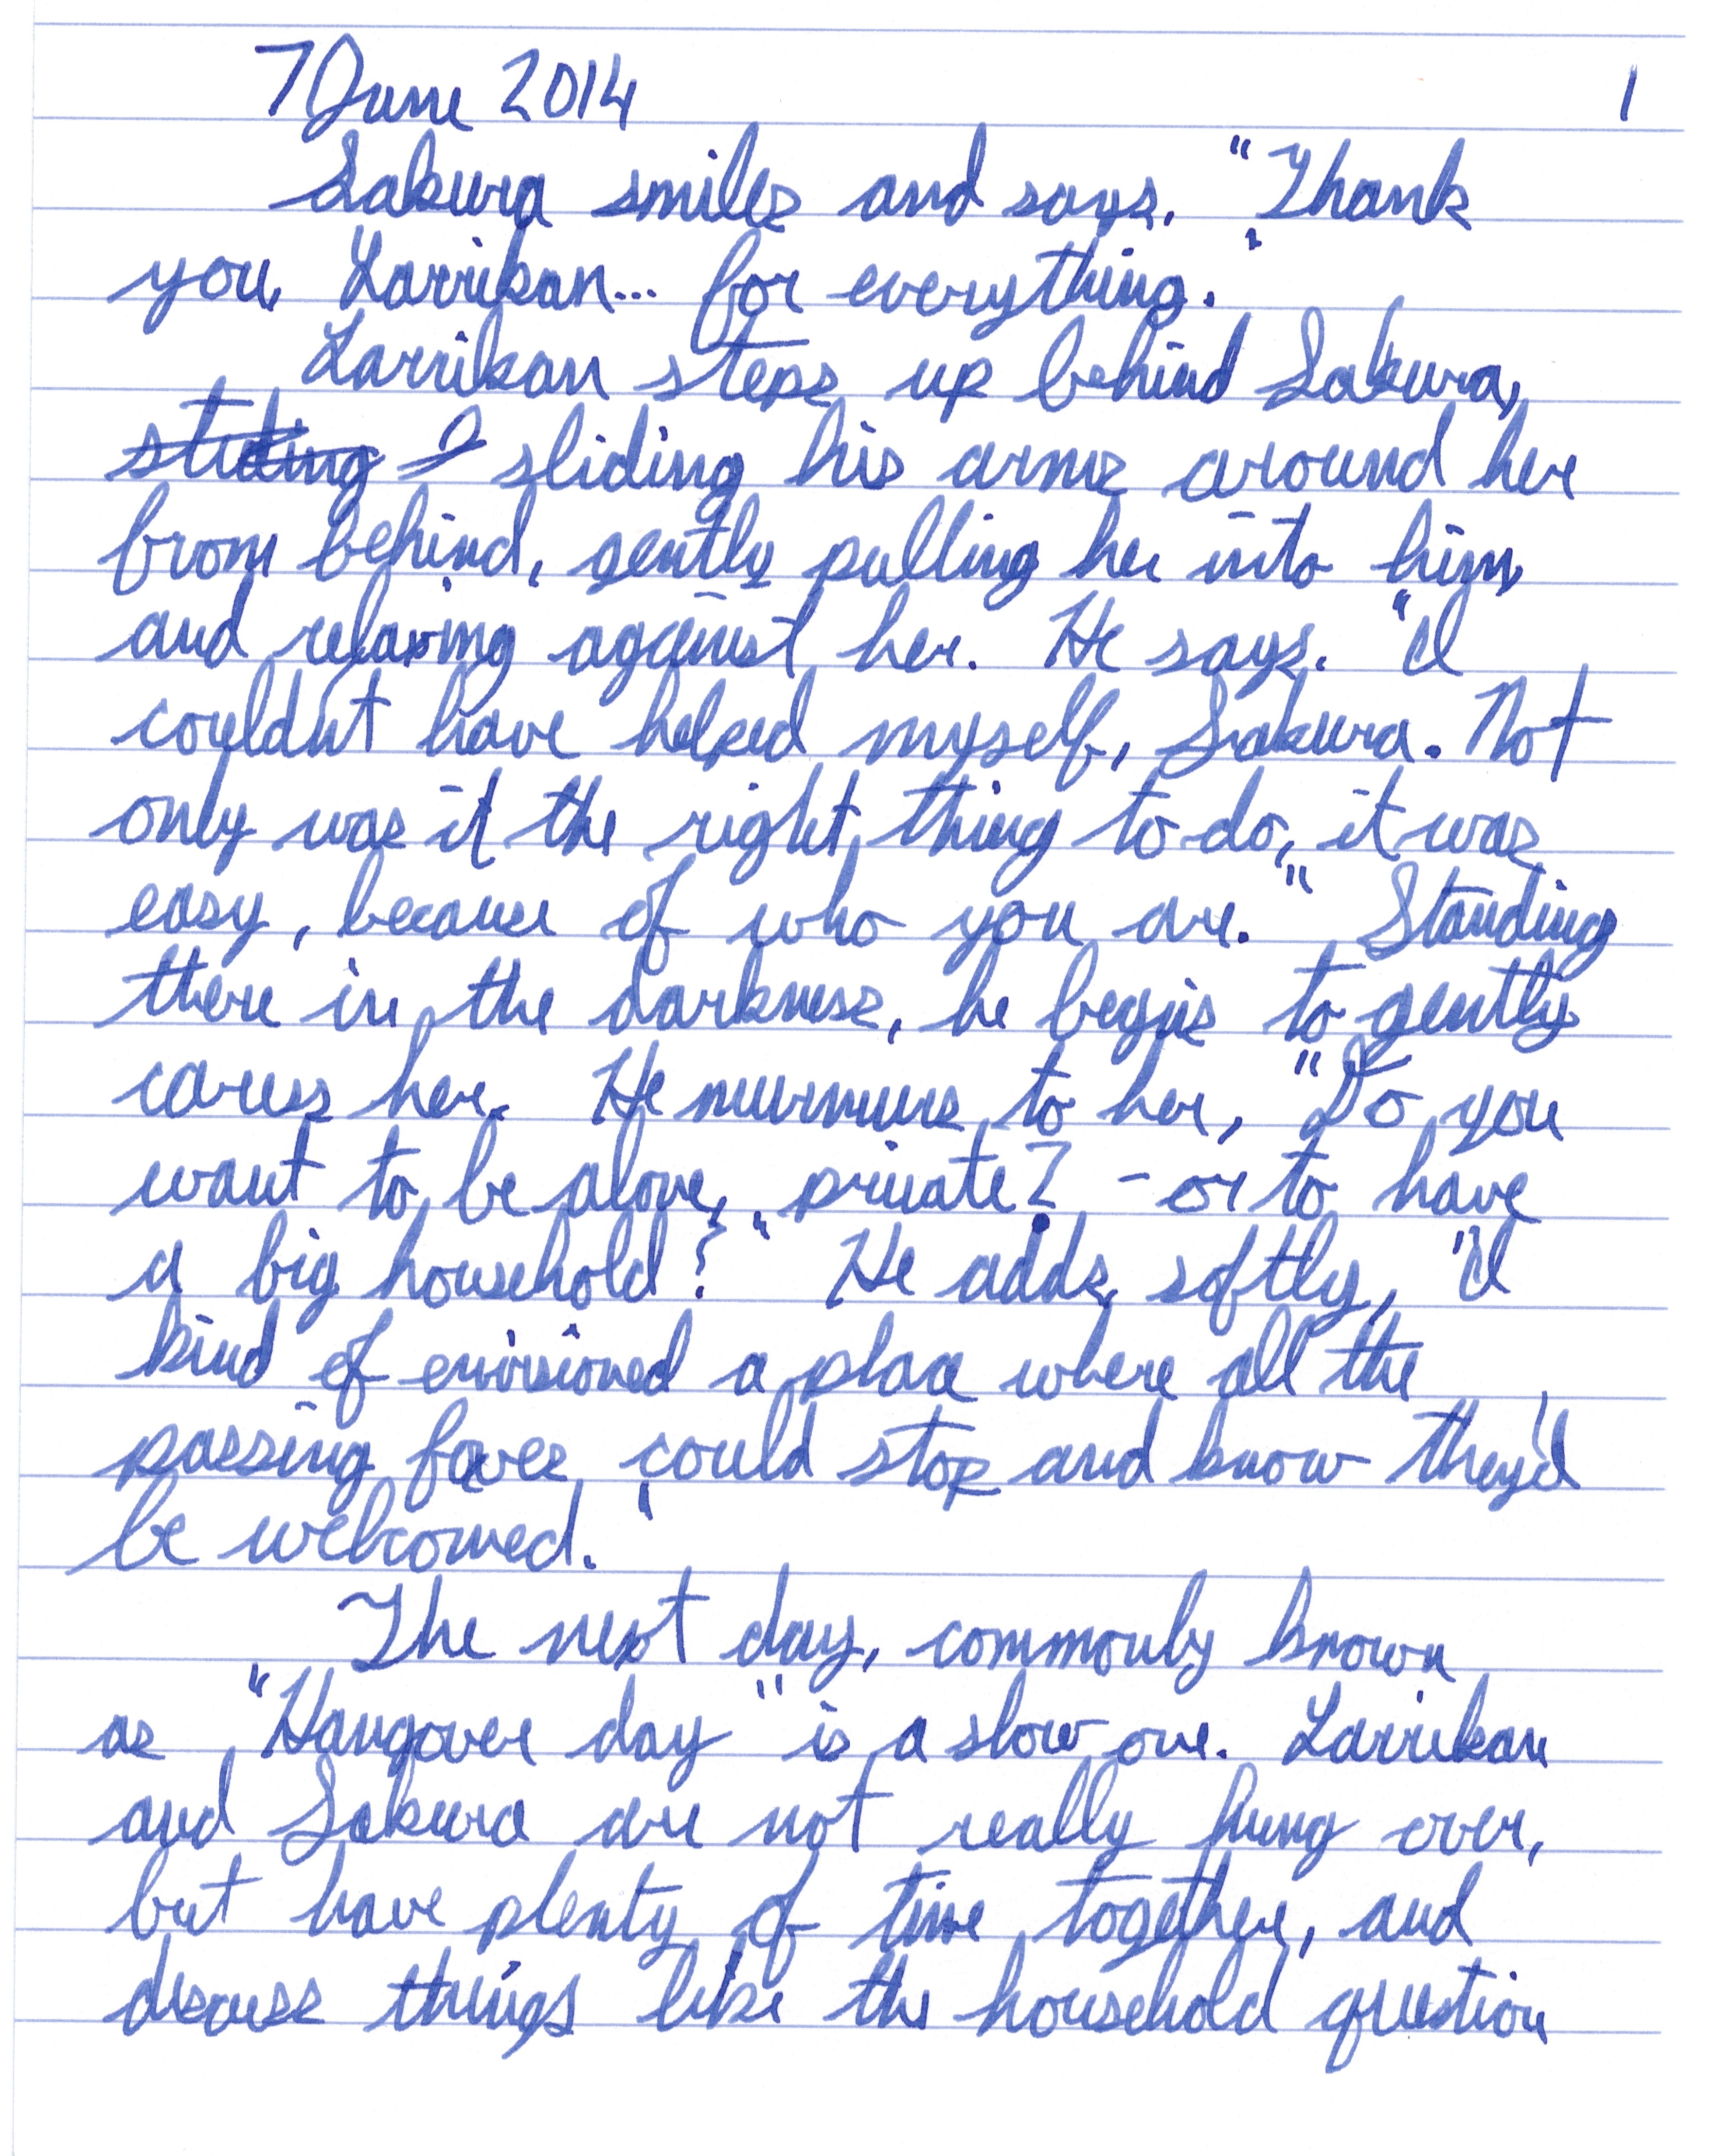 7 June 2014 1
Sakura smiles and says, "Thank
you, Larrikan... for everything."
Larrikan steps up behind Sakura,
sliding his arms around her
from behind, gently pulling her into him,
and relaxing against her. He says, "I
couldn't have helped myself, Sakura. Not
only was it the right thing to do, it was
easy, because of who you are." Standing
there in the darkness, he begins to gently
caress her. He murmurs to her, "Do you
want to be alone, private? - or to have
a big household?" He adds, softly, "I
kind of envisioned a place where all the
passing faves could stop and know they'd
be welcomed."
The next day, commonly known
as "Hangover day" is a slow one. Larrikan
and Sakura are not really hung over,
but have plenty of time together, and
discuss things like the household question